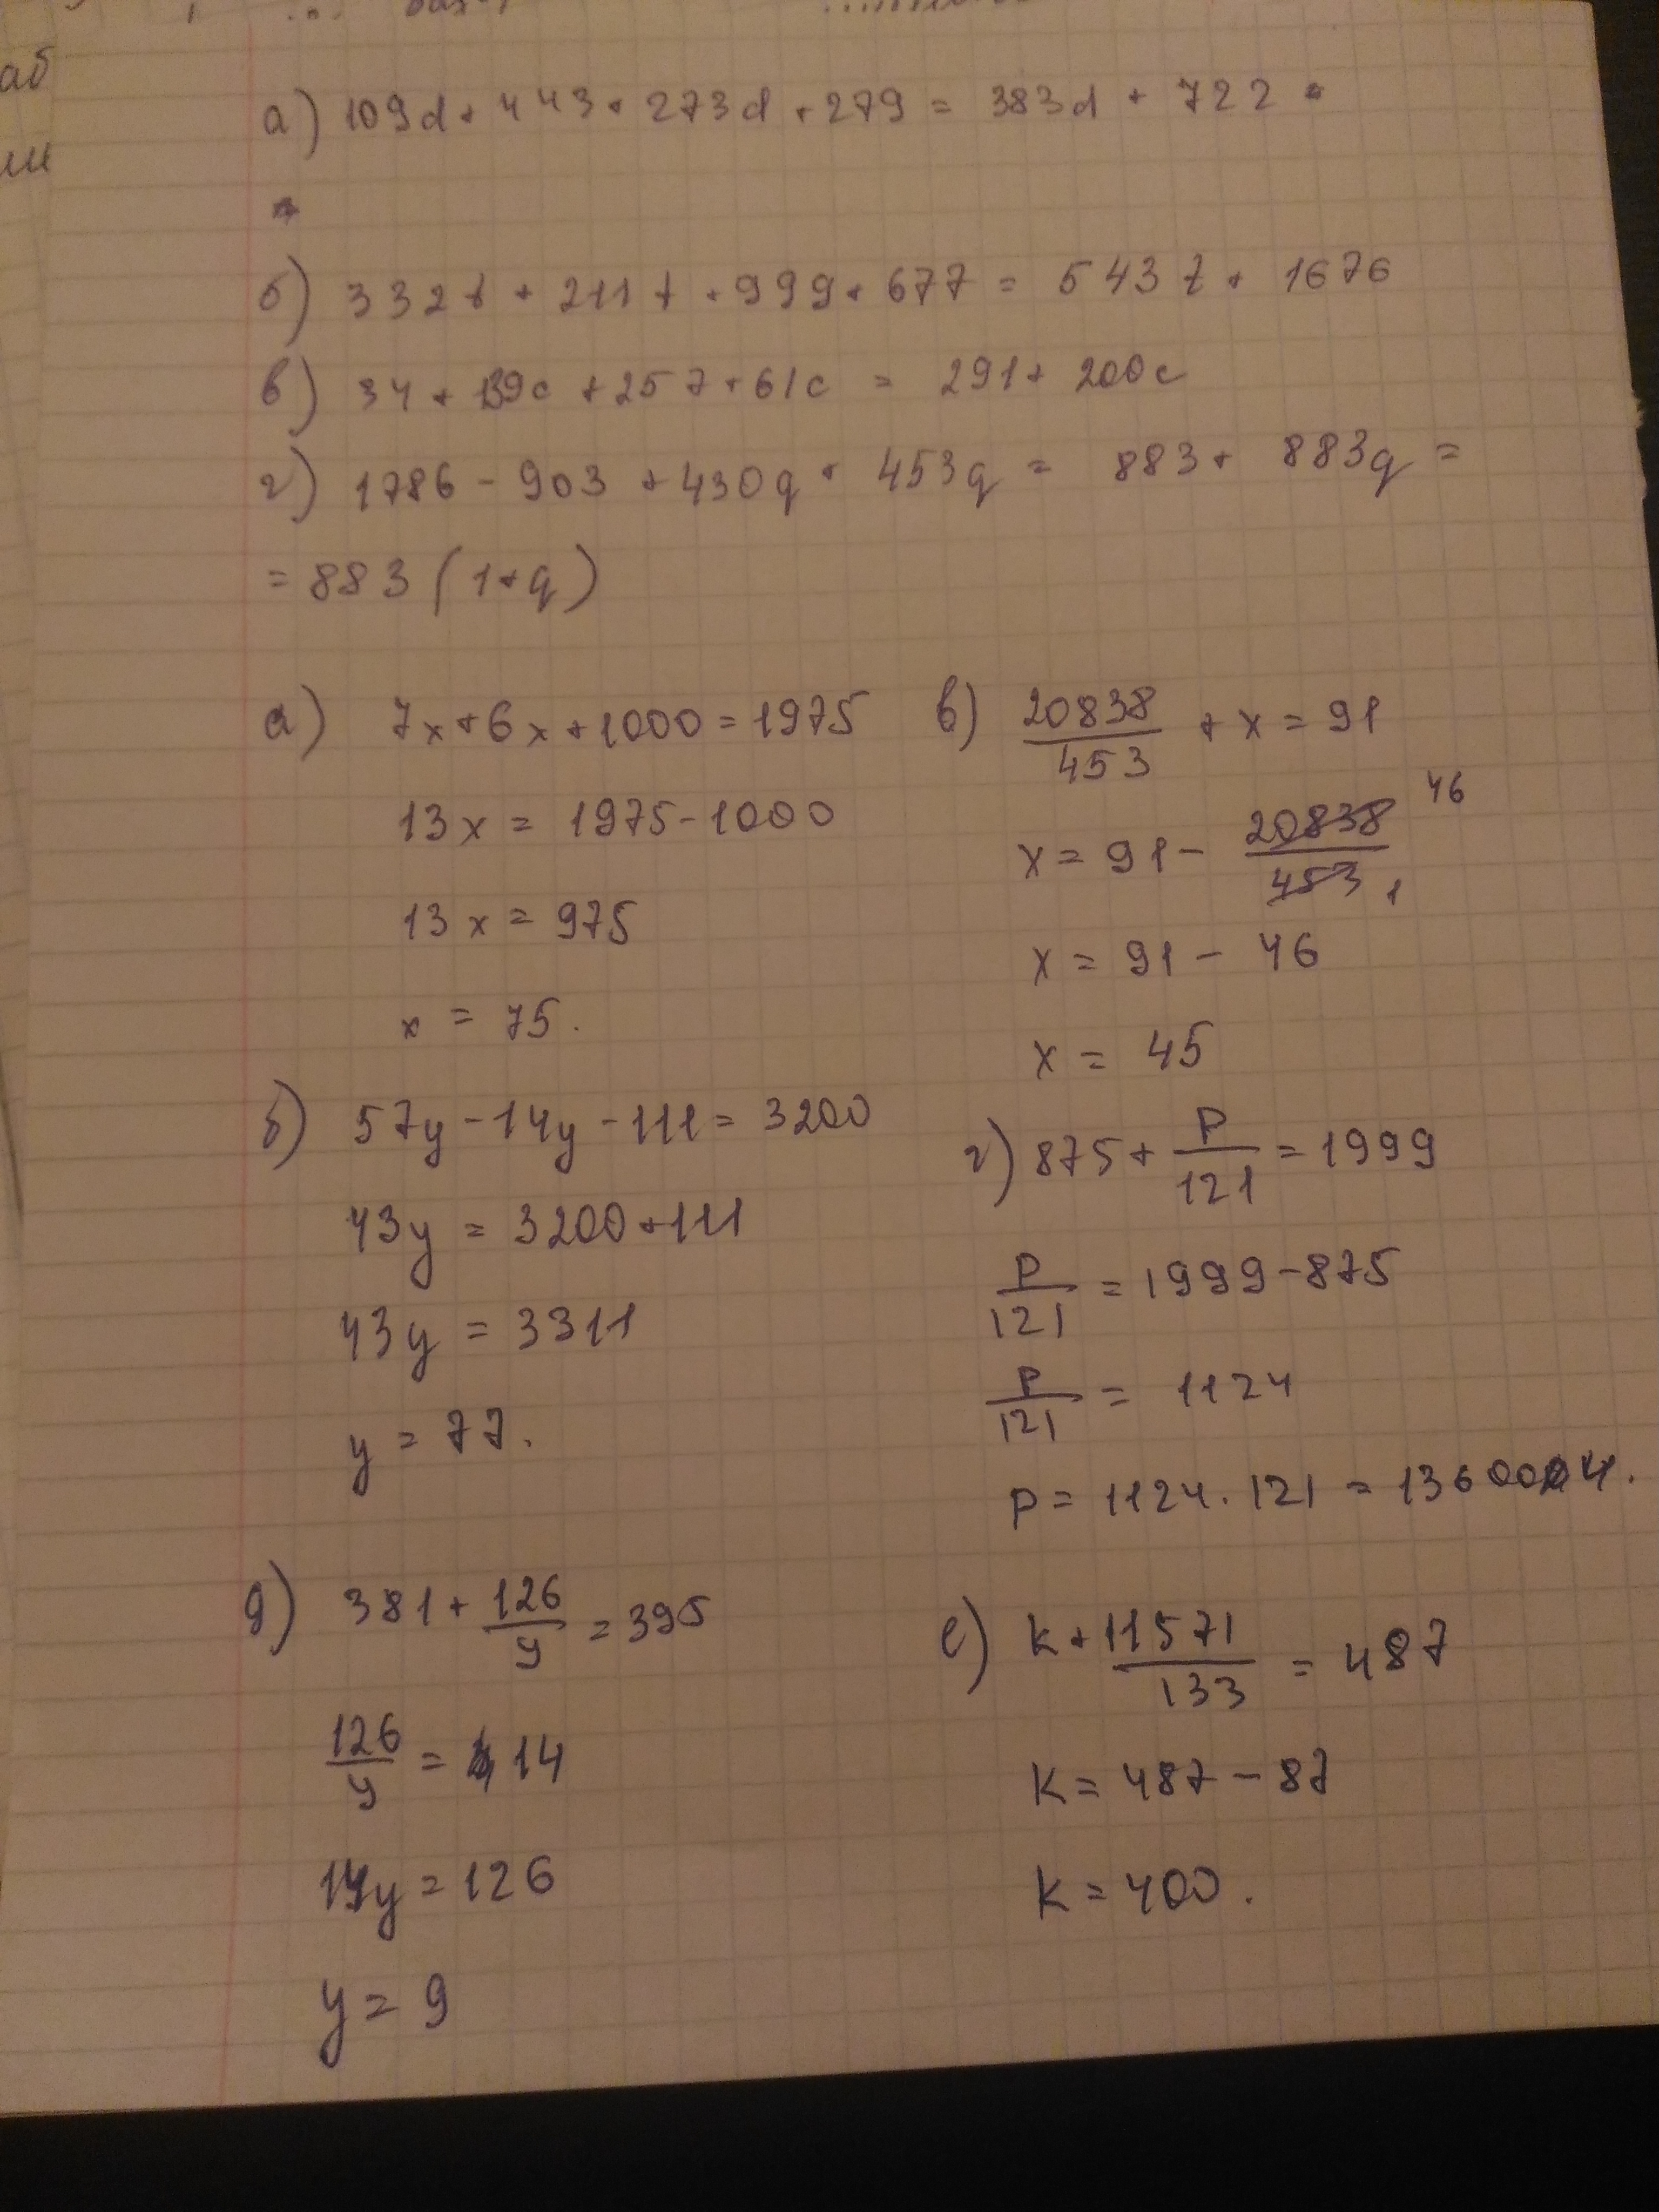 аб
ли
а) 109d + 443 + 273d + 279 = 383d + 722
б) 332t + 211t + 999 + 677 = 543t + 1676
в) 34 + 139c + 257 + 61c = 291 + 200c
г) 1786 - 903 + 430q + 453q = 883 + 883q =
= 883 (1 + q)
а) 7x + 6x + 1000 = 1975
13x = 1975 - 1000
13x = 975
x = 75.
б) 57y - 14y - 111 = 3200
43y = 3200 + 111
43y = 3311
y = 77.
в) 20838/453 + x = 91
x = 91 - 20838/453 46 1
x = 91 - 46
x = 45
г) 875 + P/121 = 1999
P/121 = 1999 - 875
P/121 = 1124
P = 1124 · 121 = 136004.
д) 381 + 126/y = 395
126/y = 14
14y = 126
y = 9
е) k + 11571/133 = 487
k = 487 - 87
k = 400.